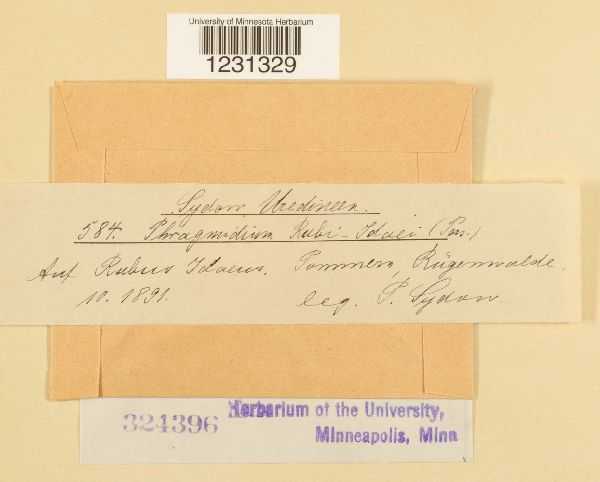 University of Minnesota Herbarium
1231329
Sydow, Uredineen.
584. Phragmidium Rubi-Idaei (Pers.)
Auf Rubus Idaeus. Pommern, Rügenwalde.
10. 1891. leg. P. Sydow.
324396 Herbarium of the University,
Minneapolis, Minn